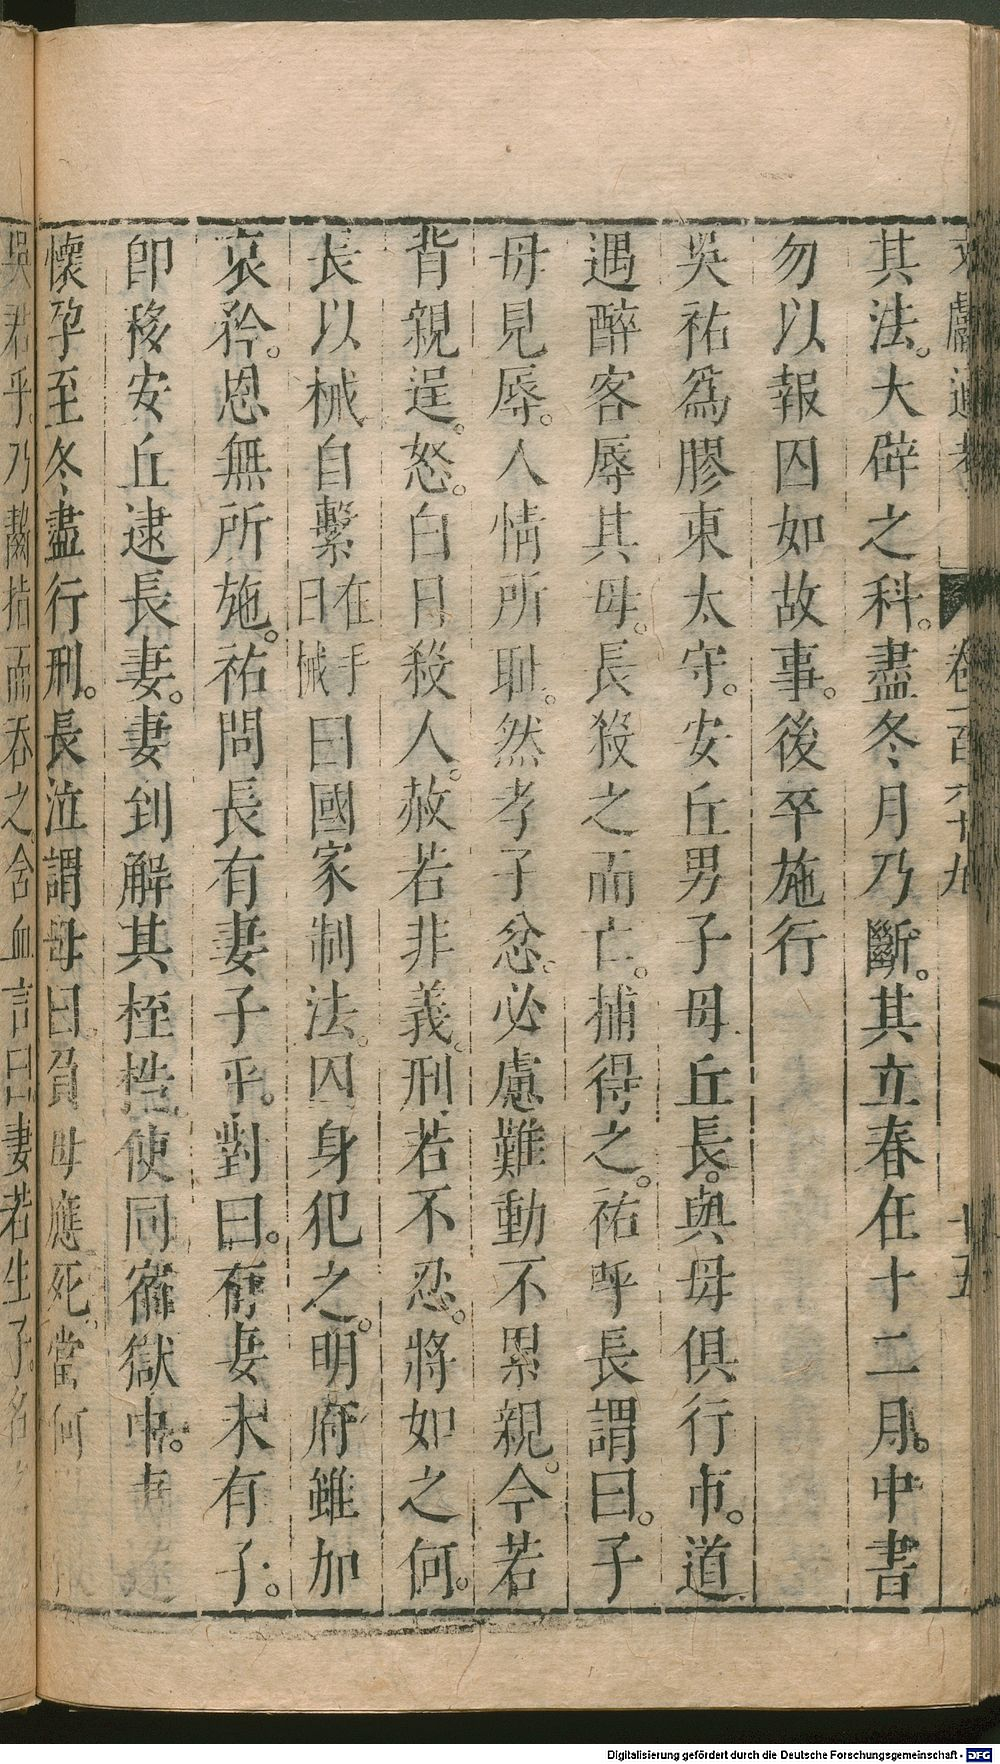 文獻通考 卷一百六十九 廿五
其法。大辟之科。盡冬月乃斷。其立春在十二月。中書
勿以報囚如故事。後卒施行
吳祐爲膠東太守。安丘男子毋丘長。與母俱行市。道
遇醉客辱其母。長殺之而亡。捕得之。祐呼長謂曰。子
母見辱。人情所恥。然孝子忿。必慮難動不累親。今若
背親逞怒。白日殺人。赦若非義。刑若不忍。將如之何。
長以械自繫在手曰械曰國家制法。囚身犯之。明府雖加
哀矜。恩無所施。祐問長有妻子乎。對曰。有妻未有子。
卽移安丘逮長妻。妻到解其桎梏。使同宿獄中。妻
懷孕至冬盡行刑。長泣謂母曰。負母應死。當何
吳君乎。乃齧指而吞之含血言曰妻若生子。名
Digitalisierung gefördert durch die Deutsche Forschungsgemeinschaft - DFG